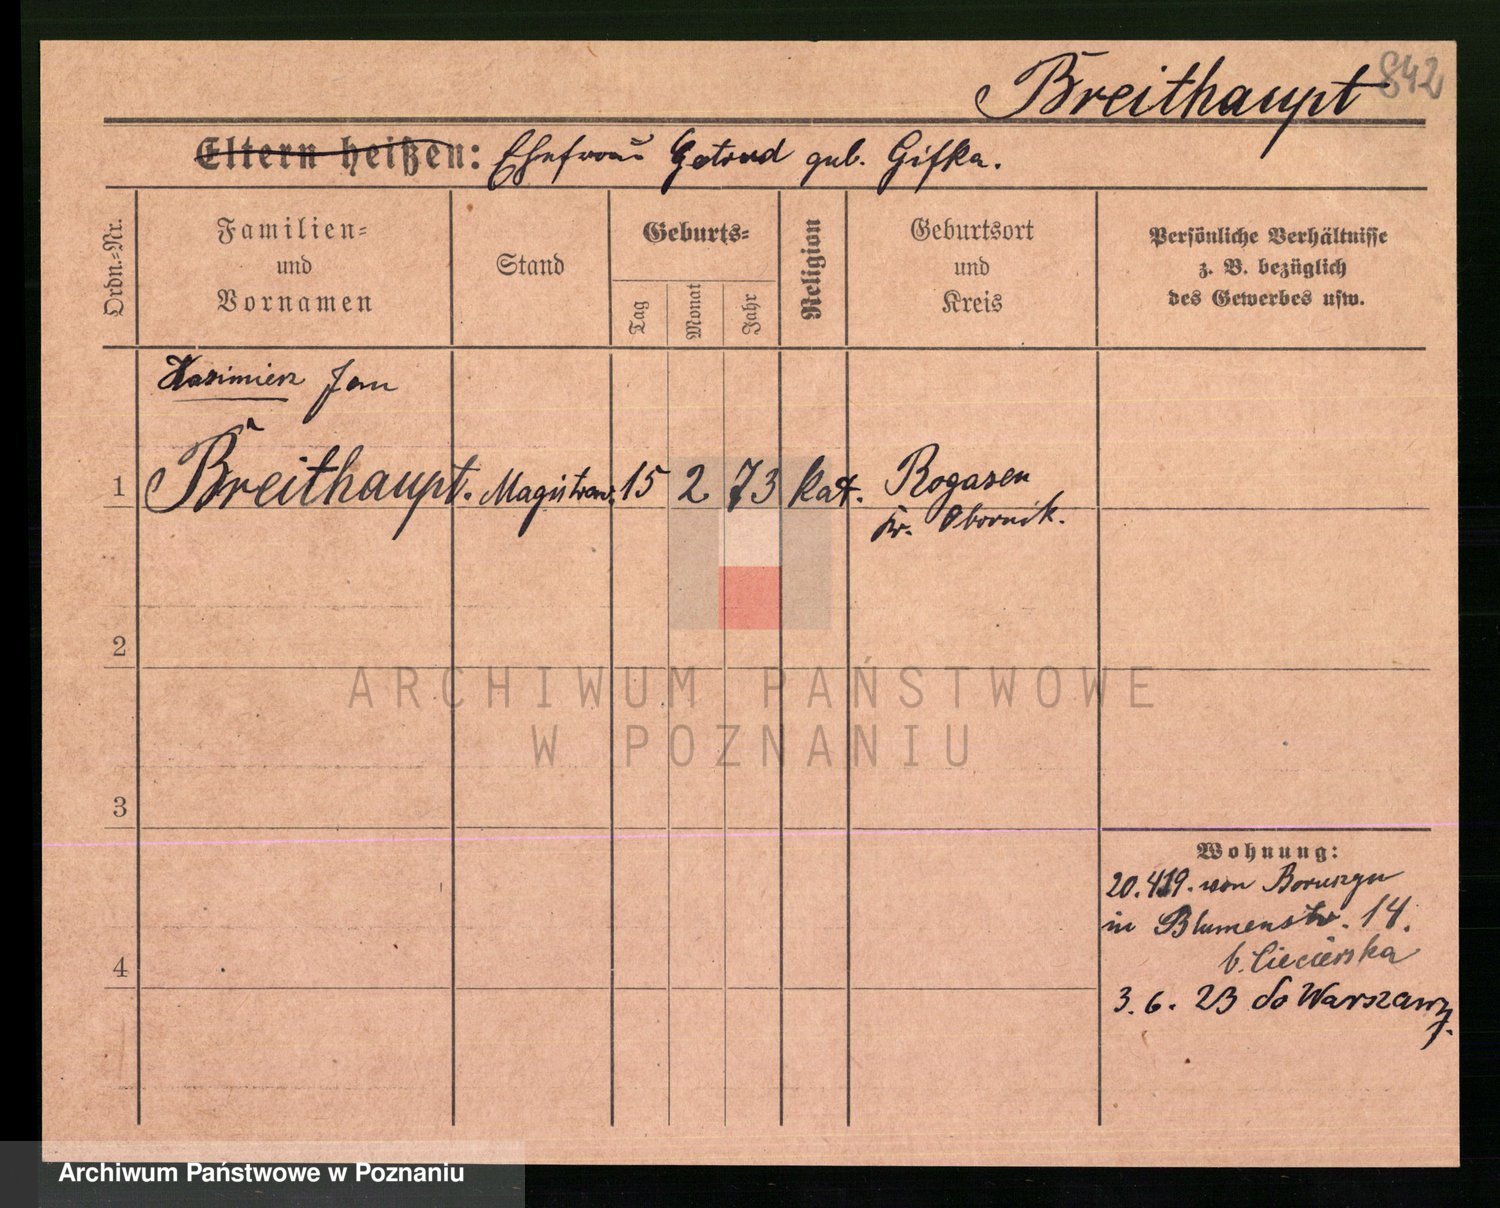 Breithaupt 842
Eltern heißen: Ehefrau Getrud geb. Gifka.
Ordn.-Nr.
Familien-
und
Vornamen
Stand
Geburts-
Tag
Monat
Jahr
Religion
Geburtsort
und
Kreis
Persönliche Verhältnisse
z. B. bezüglich
des Gewerbes usw.
Kazimierz Jan
1 Breithaupt. 15 2 73 kat. Rogasen
Kr. Obornik.
2
3
4
Wohnung:
20.4.19. von
in Blumenstr. 14.
b. Ciecierska
3. 6. 23 do Warszawy.
ARCHIWUM PAŃSTWOWE
W POZNANIU
Archiwum Państwowe w Poznaniu